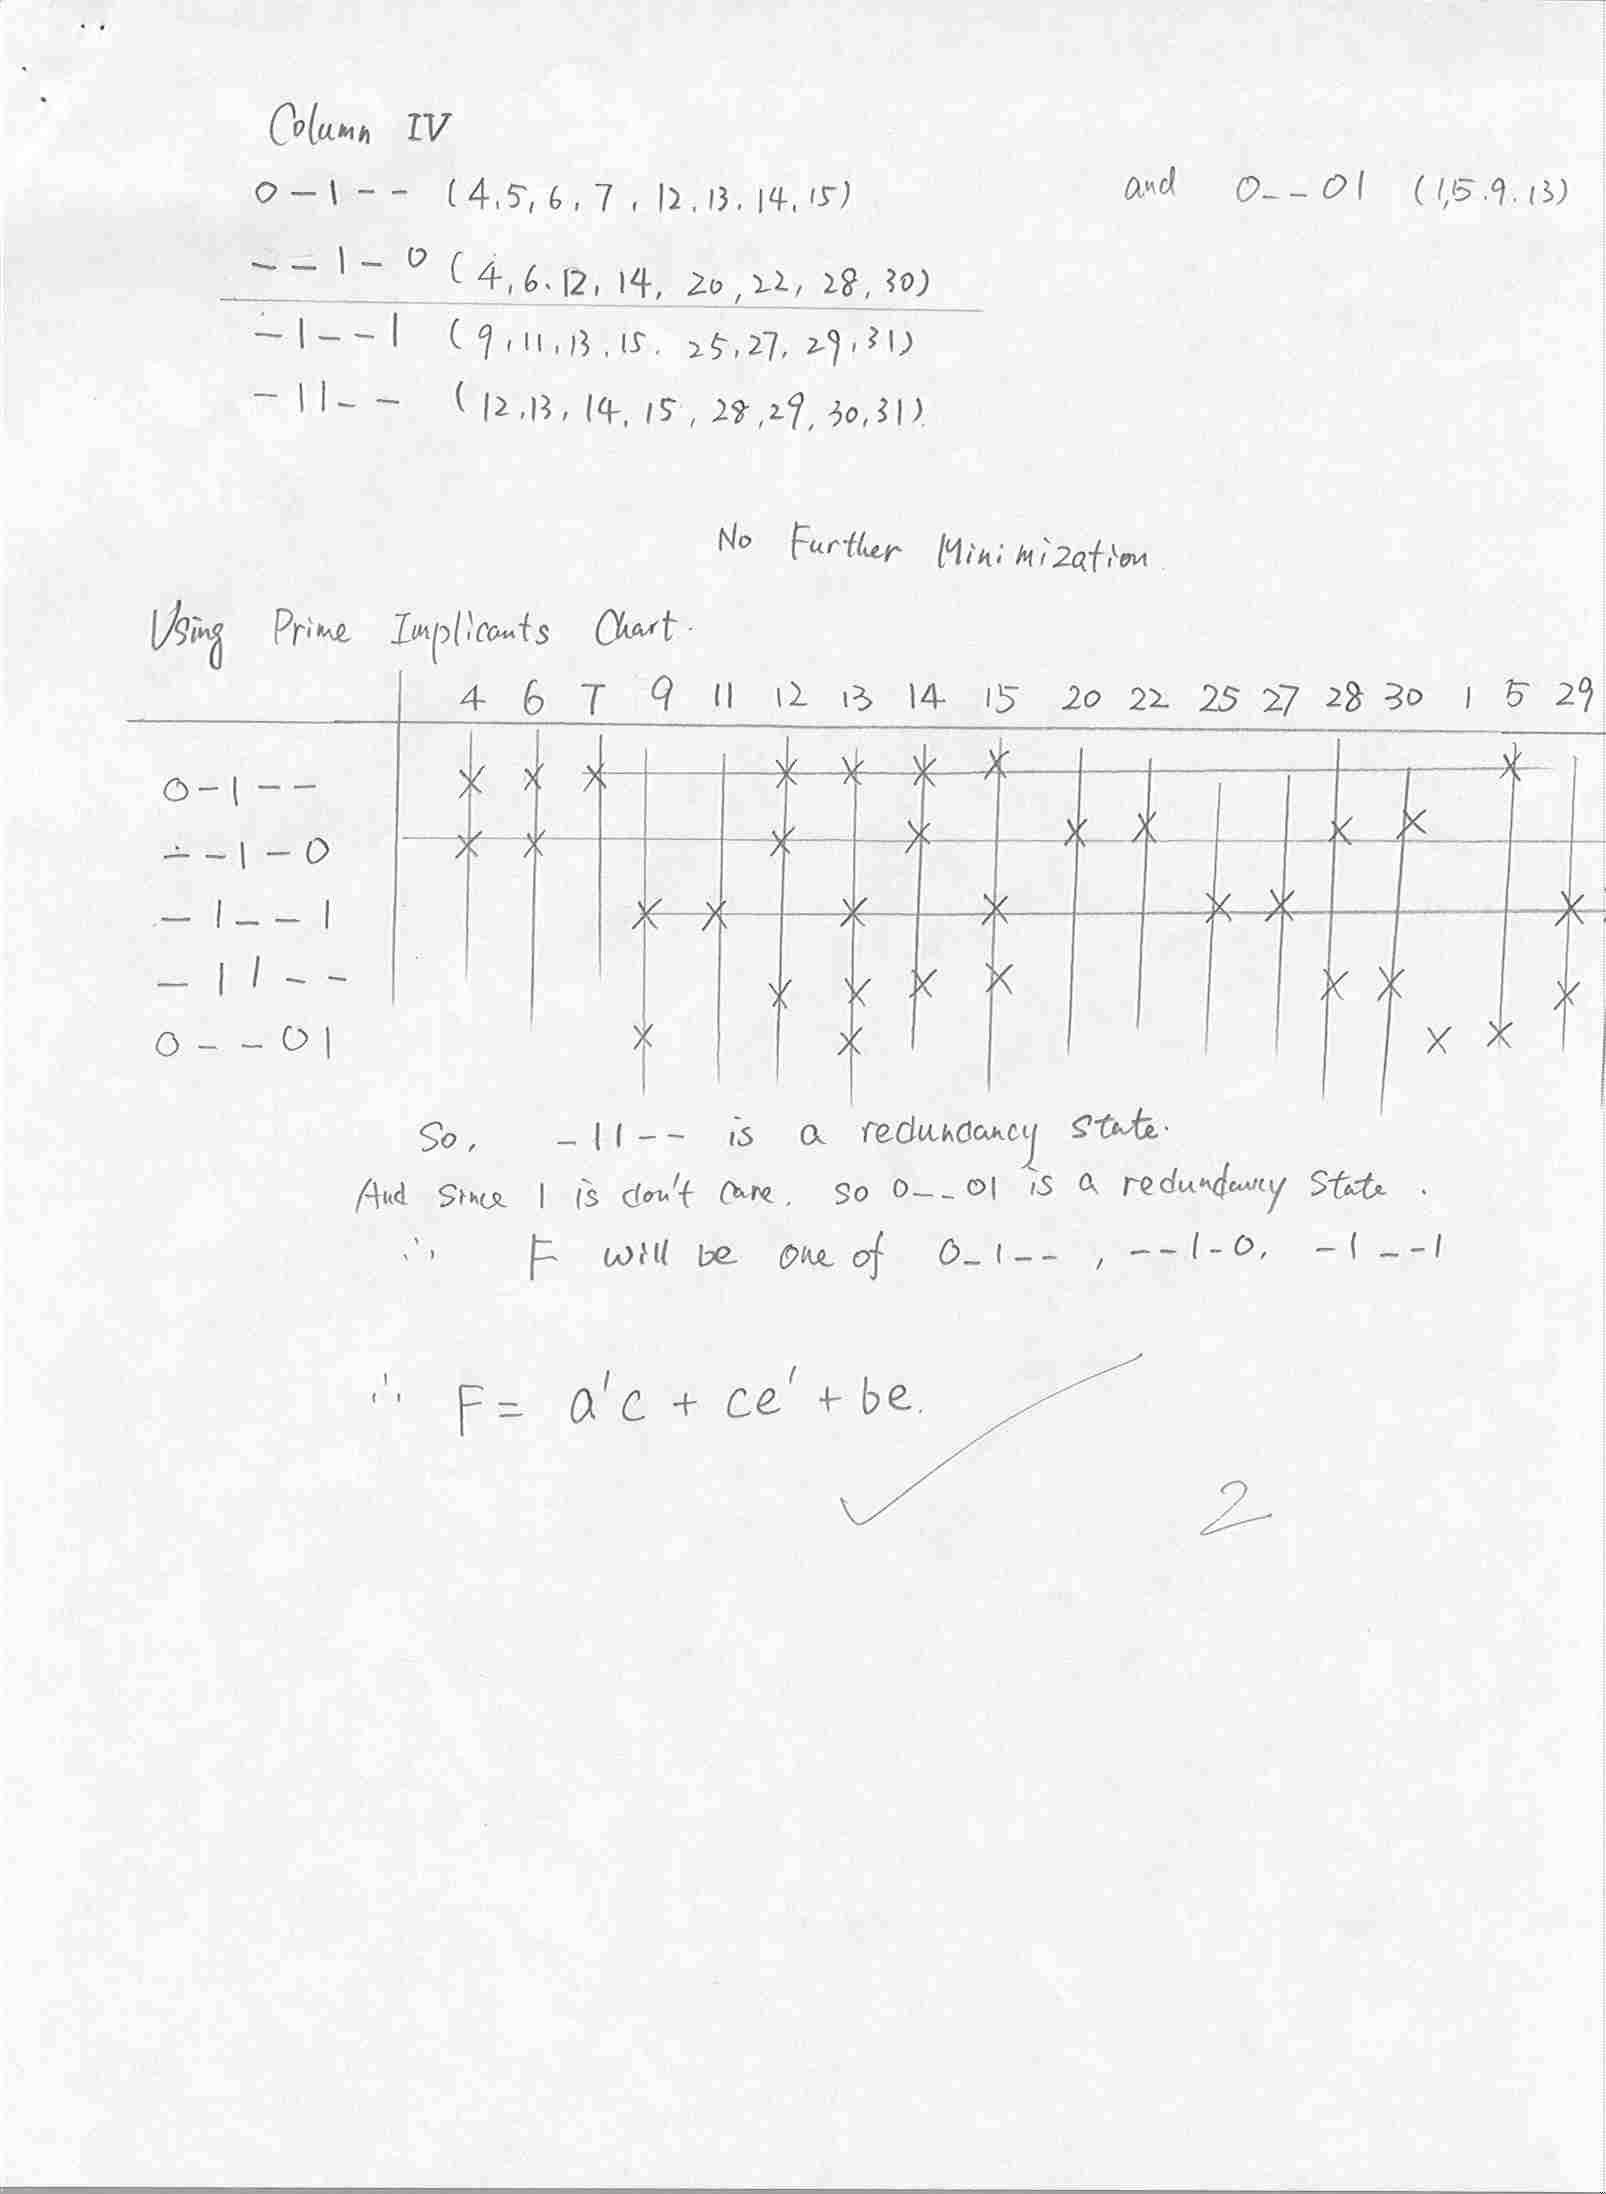 Column IV
0-1-- (4,5,6,7,12,13,14,15) and 0--01 (1,5.9.13)
--1-0 (4,6.12,14,20,22,28,30)
-1--1 (9,11,13,15.25,27,29,31)
-11-- (12,13,14,15,28,29,30,31).
No Further Minimization.
Using Prime Implicants Chart.
4 6 7 9 11 12 13 14 15 20 22 25 27 28 30 1 5 29
0-1-- X X X X X X X X
--1-0 X X X X X X X X
-1--1 X X X X X X X
-11-- X X X X X X X
0--01 X X X X
So, -11-- is a redundancy state.
And since 1 is don't care. so 0--01 is a redundancy state.
∴ F will be one of 0-1--, --1-0, -1--1
∴ F = a'c + ce' + be.
2